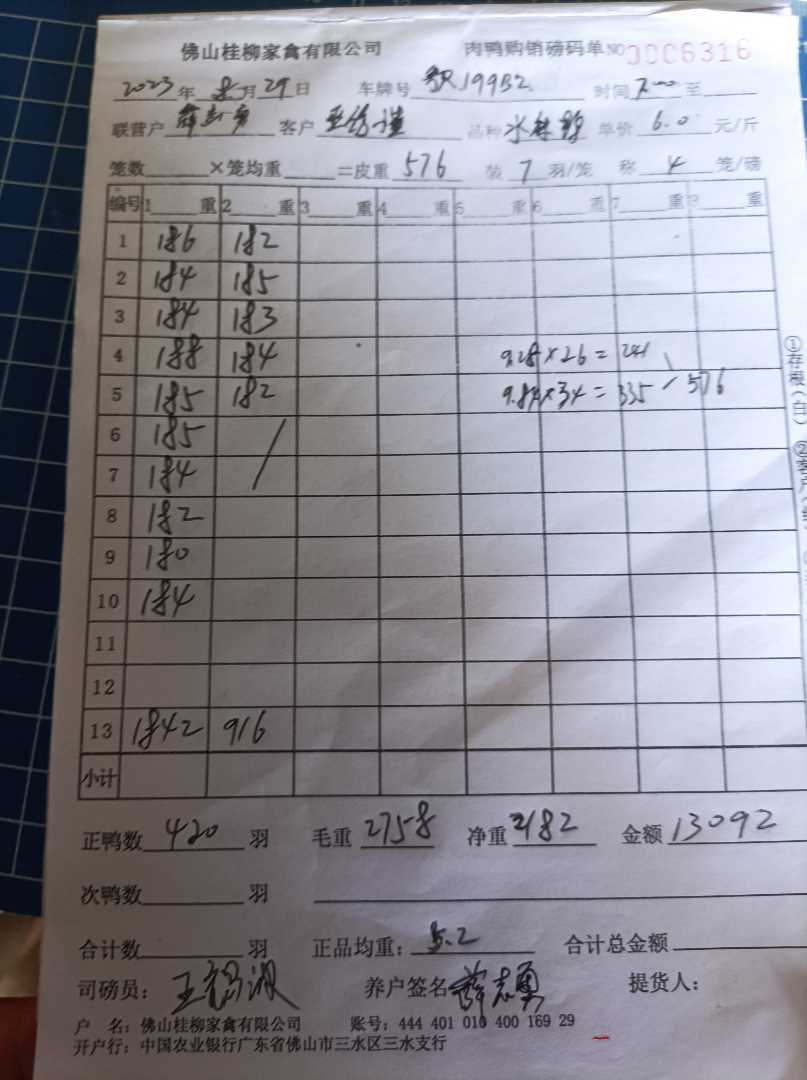 佛山桂柳家禽有限公司 肉鸭购销磅码单 NO 0006316
2023年 8月 29日 车牌号 19952 时间 7:00 至
联营户 薛志勇 客户 品种 水 单价 6.0 元/斤
笼数 ×笼均重 =皮重 576 装 7 羽/笼 称 4 笼/磅
编号 1 重 2 重 3 重 4 重 5 重 6 重 7 重 8 重
1 186 182
2 184 185
3 184 183
4 188 184 9.28×26=241
5 185 182 9.84×34=335 576
6 185
7 184
8 182
9 180
10 184
11
12
13 1842 916
小计
正鸭数 420 羽 毛重 2758 净重 2182 金额 13092
次鸭数 羽
合计数 羽 正品均重: 5.2 合计总金额
司磅员: 王锡波 养户签名 薛志勇 提货人:
户 名: 佛山桂柳家禽有限公司 账号: 444 401 010 400 169 29
开户行: 中国农业银行广东省佛山市三水区三水支行
①存根(白) ②客户